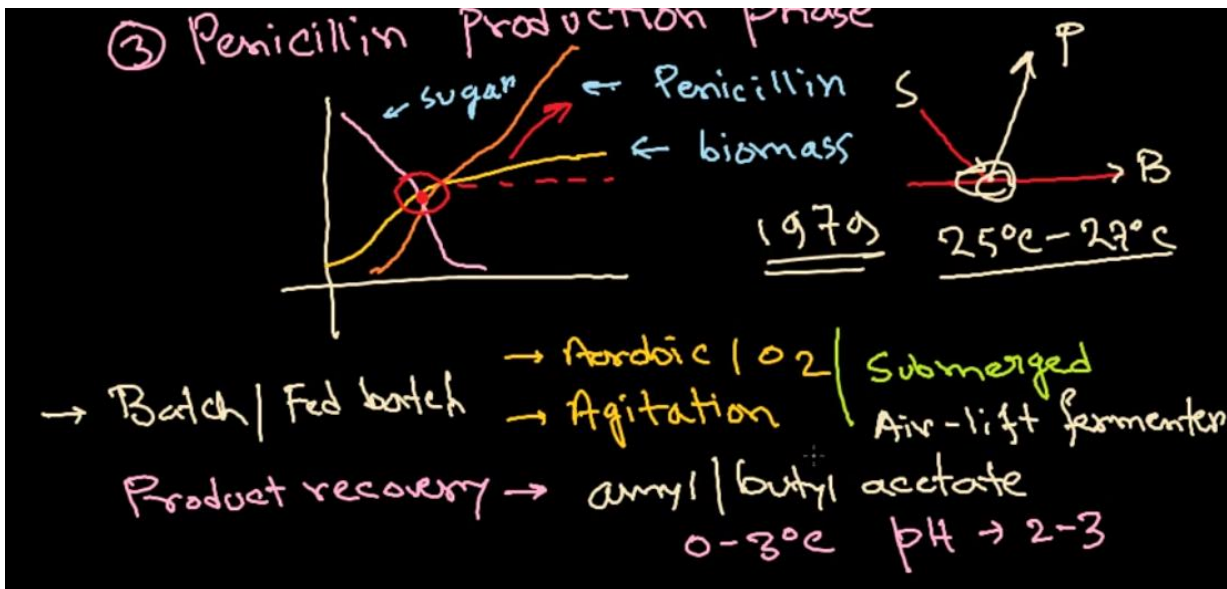 ③ Penicillin Production phase
← sugar
← Penicillin
← biomass
S
P
B
1979
25°C-27°C
→ Batch / Fed batch
→ Aordoic / O2
→ Agitation
Submerged
Air-lift fermenter
Product recovery → amyl / butyl acetate
0-3°C pH → 2-3